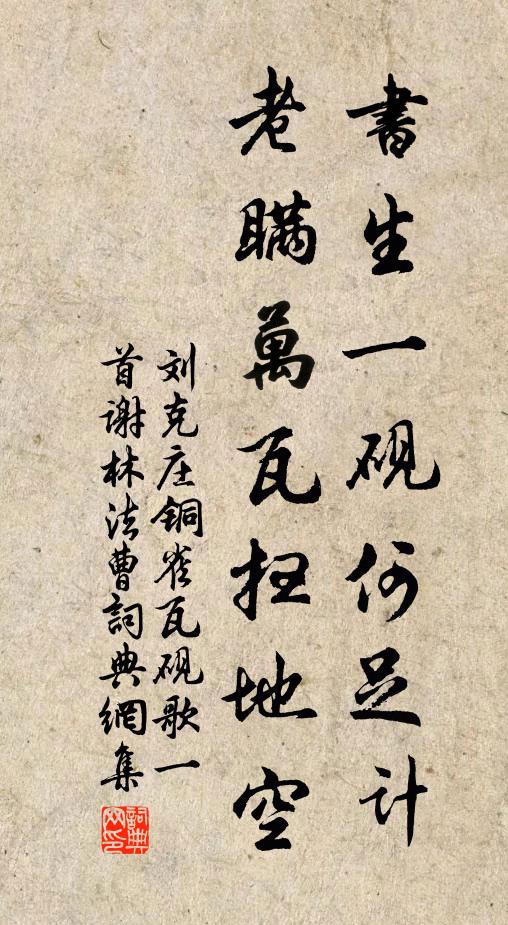 書生一砚何足计
老瞞萬瓦扫地空
刘克庄铜雀瓦砚歌一
首谢林法曹詞典網集
詞典
网印